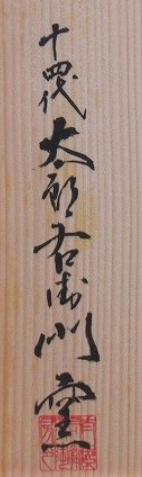 十四代 太郎右衛門 窯